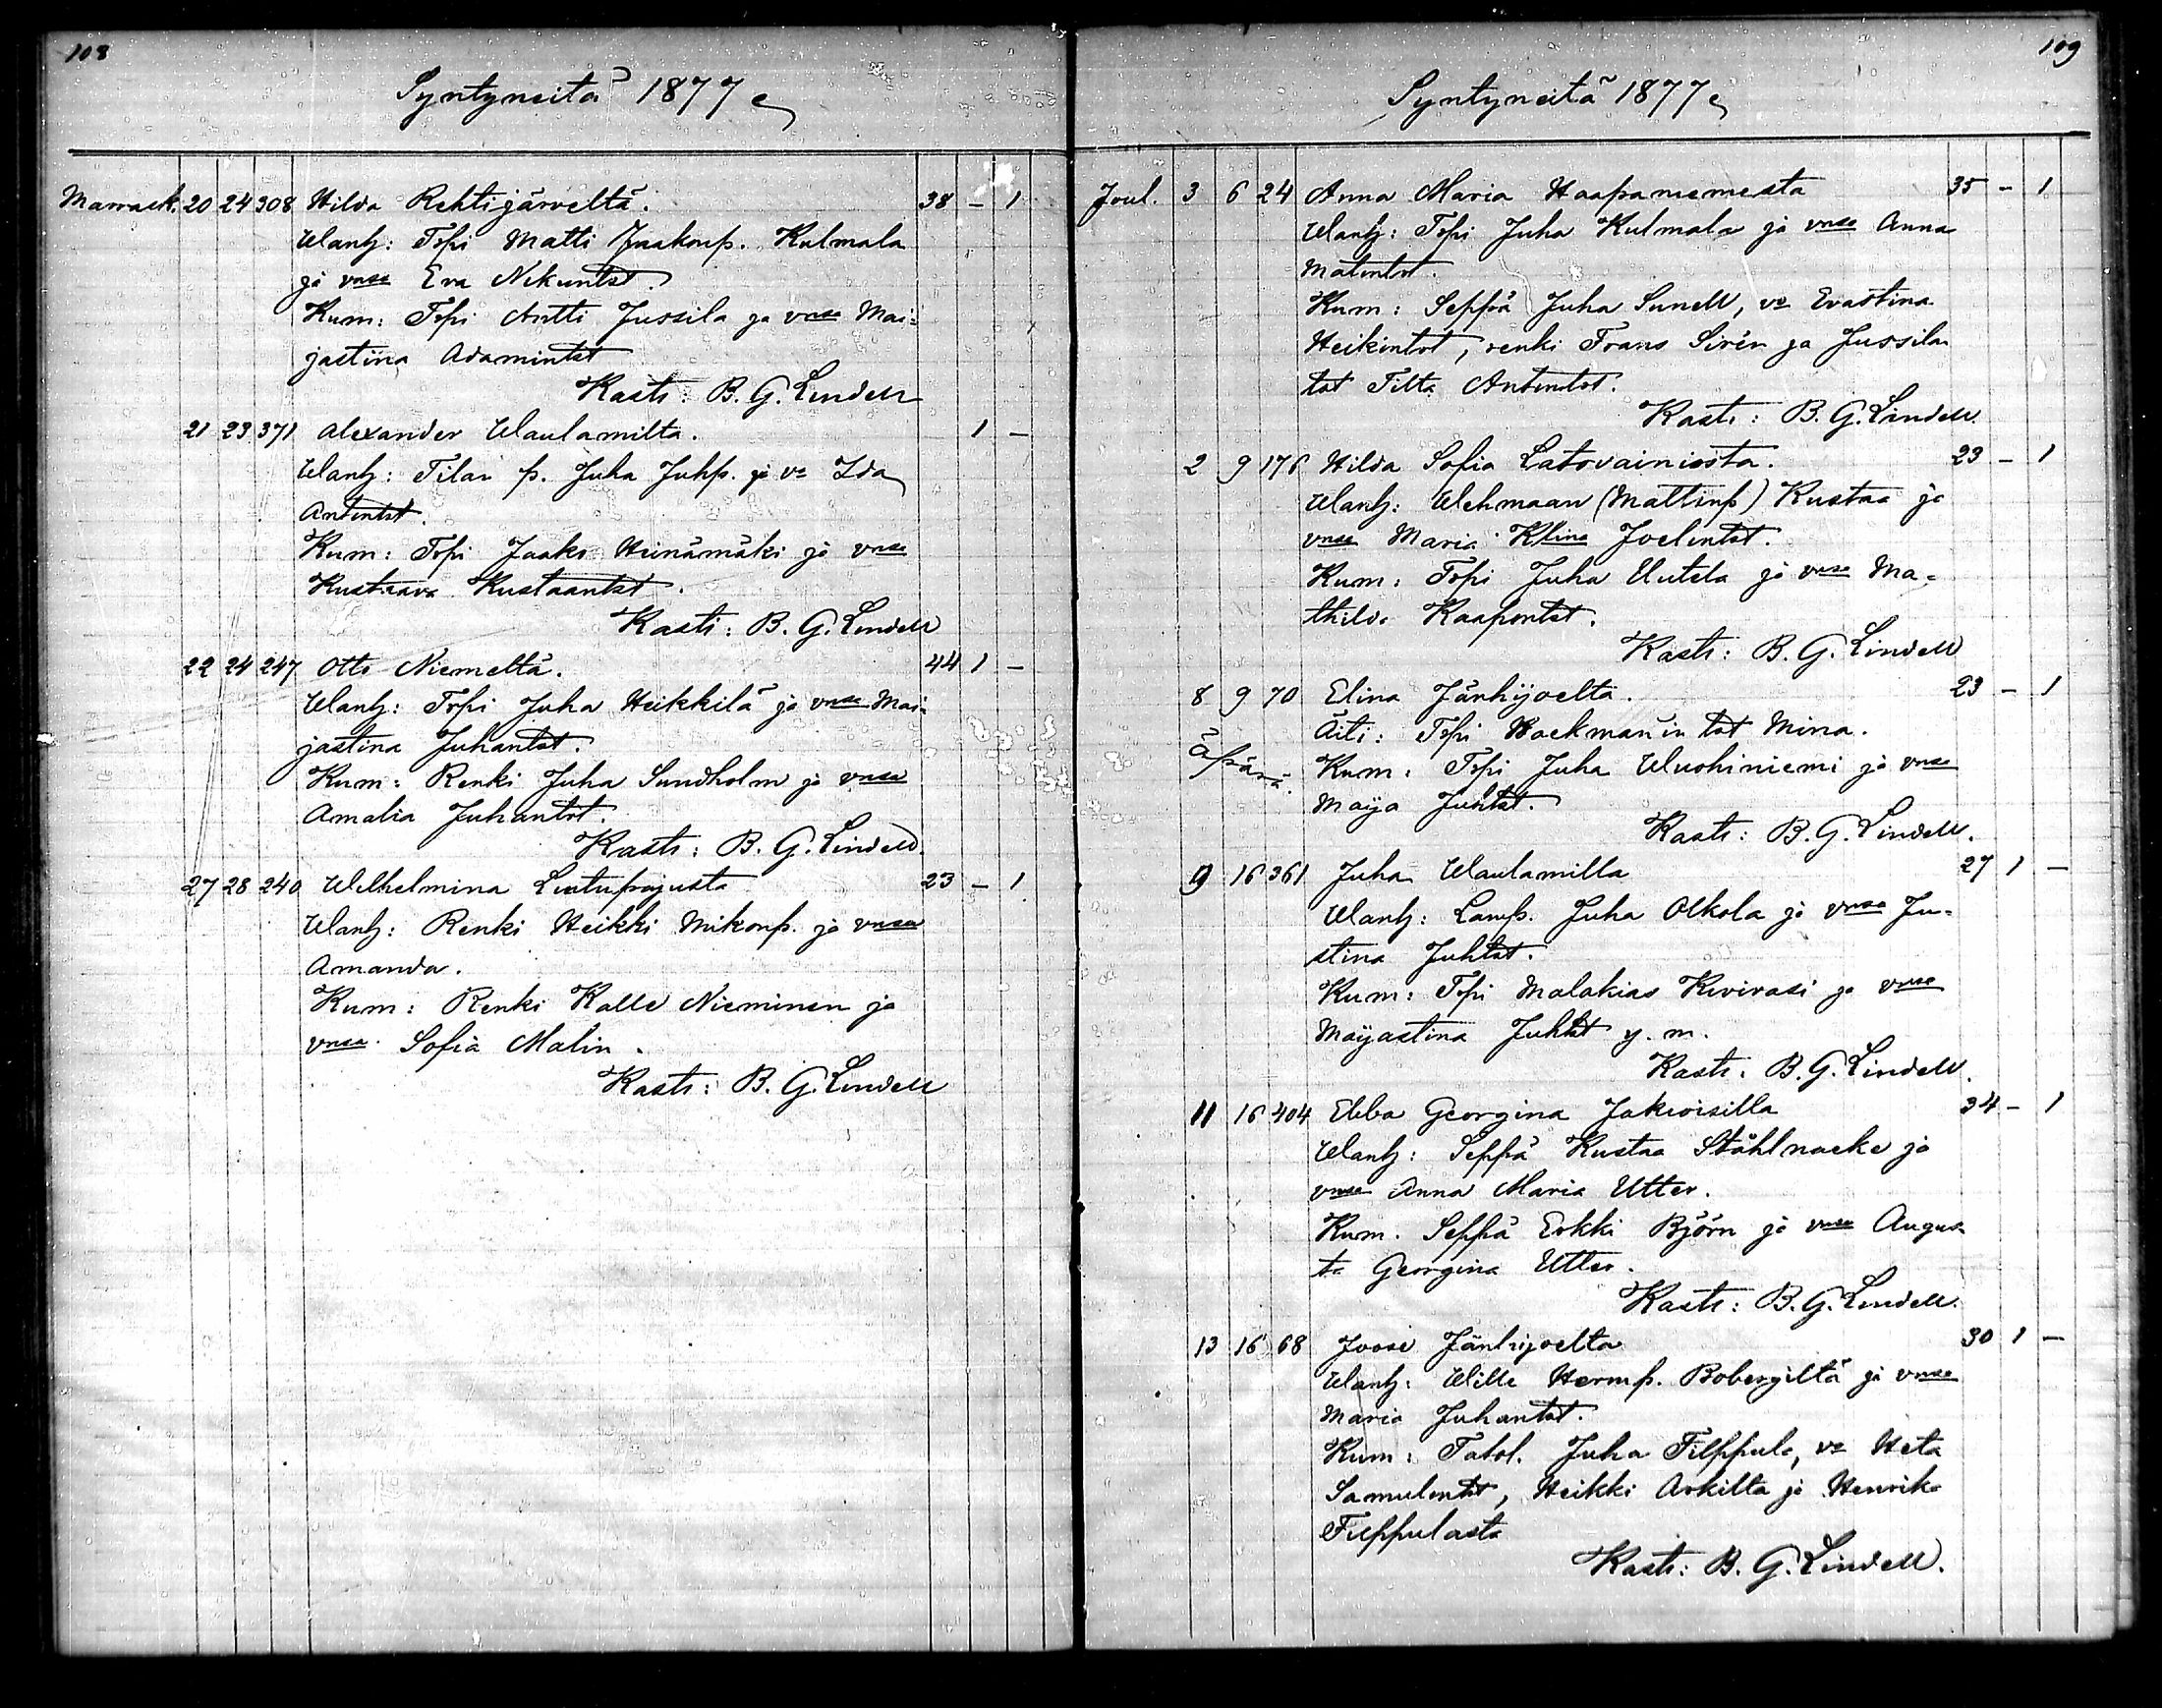 108
Syntyneitä 1877
Marrask. 20 24 308 Hilda Rehtijärveltä. 38 – 1
Wanh: Torpi Matti Jaakonp. Kulmala
ja vnsa Eva Nikuntst.
Kum: Torpi Antti Jussila ja vnsa Mai-
jastiina Adamintst
Kasti: B. G. Lindell
21 23 371 Alexander Waulamilta. 1 –
Wanh: Tilan p. Juha Juhp. ja vo Ida
Antintst.
Kum: Torpi Jaako Heinämäki ja vnsa
Kustaava Kustaantst.
Kasti: B. G. Lindell
22 24 247 Otto Niemeltä. 44 1 –
Wanh: Torpi Juha Heikkilä ja vnsa Mai-
jastina Juhantst.
Kum: Renki Juha Sundholm ja vnsa
Amalia Juhantst.
Kasti: B. G. Lindell.
27 28 240 Wilhelmina Lintupajusta 23 – 1
Wanh: Renki Heikki Mikonp. ja vnsa
Amanda.
Kum: Renki Kalle Nieminen ja
vnsa Sofia Malin.
Kasti: B. G. Lindell
109
Syntyneitä 1877
Joul. 3 6 24 Anna Maria Haapaniemesta 35 – 1
Wanh: Torpi Juha Kulmala ja vnsa Anna
Matintst.
Kum: Seppä Juha Sunell, vo Evastina
Heikintst, renki Frans Sirén ja Jussilan
tst Tilta Antintst.
Kasti: B. G. Lindell.
2 9 176 Hilda Sofia Latovainiosta. 23 – 1
Wanh: Wehmaan (Mattinp) Kustaa ja
vnsa Maria Klina Joelintst.
Kum: Torpi Juha Uutela ja vnsa Ma-
thilda Kaapontst.
Kasti: B. G. Lindell
8 9 70 Elina Jänhijoelta. 23 – 1
Äpärä.
Äiti: Torpi Hoekmanin tst Mina.
Kum: Torpi Juha Wuohiniemi ja vnsa
Maija Juhtst.
Kasti: B. G. Lindell.
9 16 361 Juha Waulamilla 27 1 –
Wanh: Lamp. Juha Olkola ja vnsa Ju-
stina Juhtst.
Kum: Torpi Malakias Kivirasi ja vnsa
Maijastina Juhtst y. m.
Kasti: B. G. Lindell.
11 16 404 Ebba Georgina Jokioisilla 34 – 1
Wanh: Seppä Kustaa Ståhlnacke ja
vnsa Anna Maria Utter.
Kum. Seppä Erkki Björn ja vnsa Augus-
ta Georgina Utter.
Kasti: B. G. Lindell.
13 16 68 Joose Jänhijoelta 30 1 –
Wanh: Wille Hermp. Bobergiltä ja vnsa
Maria Juhantst.
Kum: Talol. Juha Filppula, vo Heta
Samulintst, Heikki Arkilta ja Henrik
Filppulasta
Kasti: B. G. Lindell.